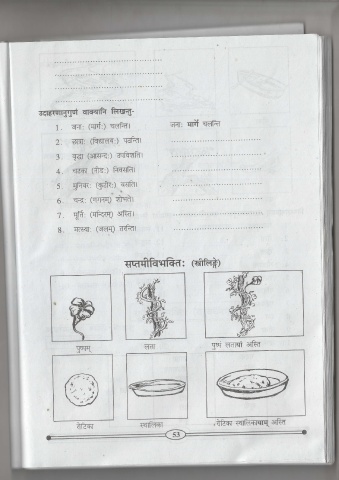 उदाहरणानुगुणं वाक्यानि लिखन्तु-
1. जनः (मार्गः) चलन्ति। जनः मार्गे चलन्ति
2. छात्राः (विद्यालयम्) पठन्ति।
3. वृद्धा (आसन्दः) उपविशति।
4. चटका (नीडः) निवसति।
5. मुनिवरः (कुटीरः) वसति।
6. चन्द्रः (गगनम्) शोभते।
7. मूर्तिः (मन्दिरम्) अस्ति।
8. मत्स्याः (जलम्) तरन्ति।
सप्तमीविभक्तिः (स्त्रीलिङ्गे)
पुष्पम् लता पुष्पं लतायां अस्ति
रोटिका स्थालिका रोटिका स्थालिकायाम् अस्ति
53